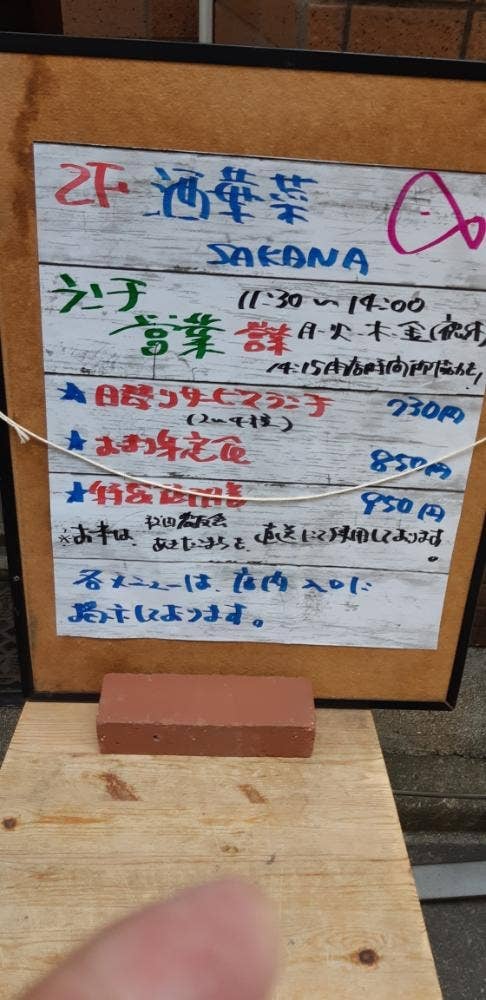 2F 酒菜菜
SAKANA
ランチ 11:30〜14:00
営業 営業 月・火・木・金(祝休)
14:15
★日替りサービスランチ 730円
★おまかせ定食 850円
★特 膳 950円
※お米は、秋田 あきたこまちを、直送にて使用しております。
各メニューは、店内入口に
掲示しております。